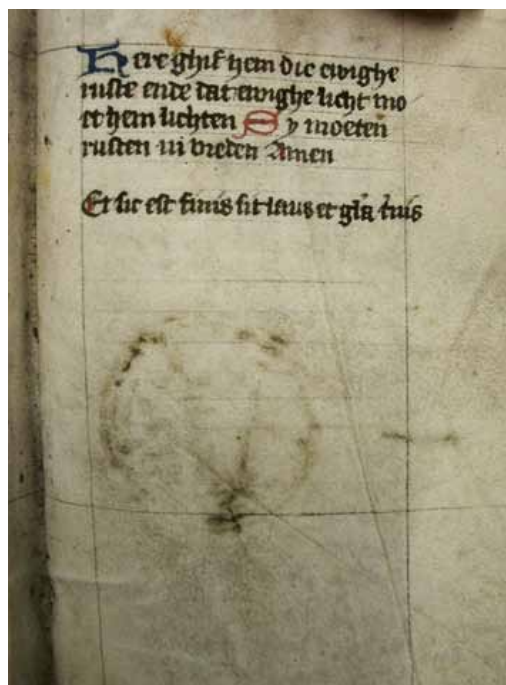 Here ghif hem die ewighe
ruste ende dat ewighe licht mo
et hem lichten Sy moeten
rusten in vreden Amen
Et sic est finis sit laus et gla